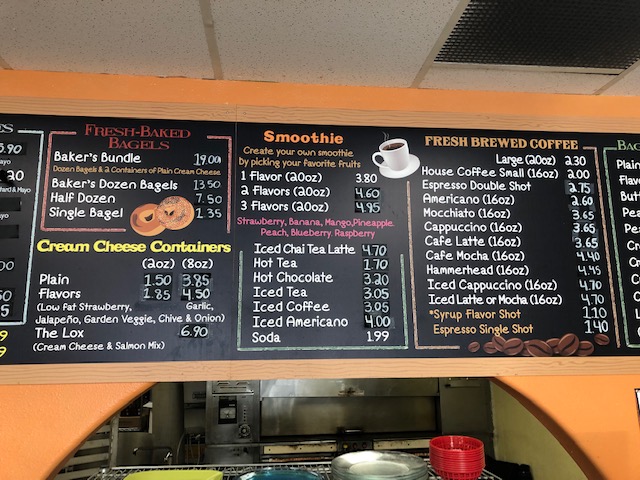 ES
5.90
ayo
.20
tard & Mayo
ayo
00
50
5
9
9
FRESH-BAKED
BAGELS
Baker's Bundle 19.00
Dozen Bagels & 2 Containers of Plain Cream Cheese
Baker's Dozen Bagels 13.50
Half Dozen 7.50
Single Bagel 1.35
Cream Cheese Containers
(2oz) (8oz)
Plain 1.50 3.85
Flavors 1.85 4.50
(Low Fat Strawberry, Garlic,
Jalapeño, Garden Veggie, Chive & Onion)
The Lox 6.90
(Cream Cheese & Salmon Mix)
Smoothie
Create your own smoothie
by picking your favorite fruits
1 Flavor (20oz) 3.80
2 Flavors (20oz) 4.60
3 Flavors (20oz) 4.95
Strawberry, Banana, Mango, Pineapple
Peach, Blueberry, Raspberry
Iced Chai Tea Latte 4.70
Hot Tea 1.70
Hot Chocolate 3.20
Iced Tea 3.05
Iced Coffee 3.05
Iced Americano 4.00
Soda 1.99
FRESH BREWED COFFEE
Large (20oz) 2.30
House Coffee Small (16oz) 2.00
Espresso Double Shot 2.75
Americano (16oz) 2.60
Mocchiato (16oz) 3.65
Cappuccino (16oz) 3.65
Cafe Latte (16oz) 3.65
Cafe Mocha (16oz) 4.40
Hammerhead (16oz) 4.45
Iced Cappuccino (16oz) 4.70
Iced Latte or Mocha (16oz) 4.70
*Syrup Flavor Shot 1.10
Espresso Single Shot 1.40
BAG
Plain
Butt
Pe
Pe
Cr
Cr